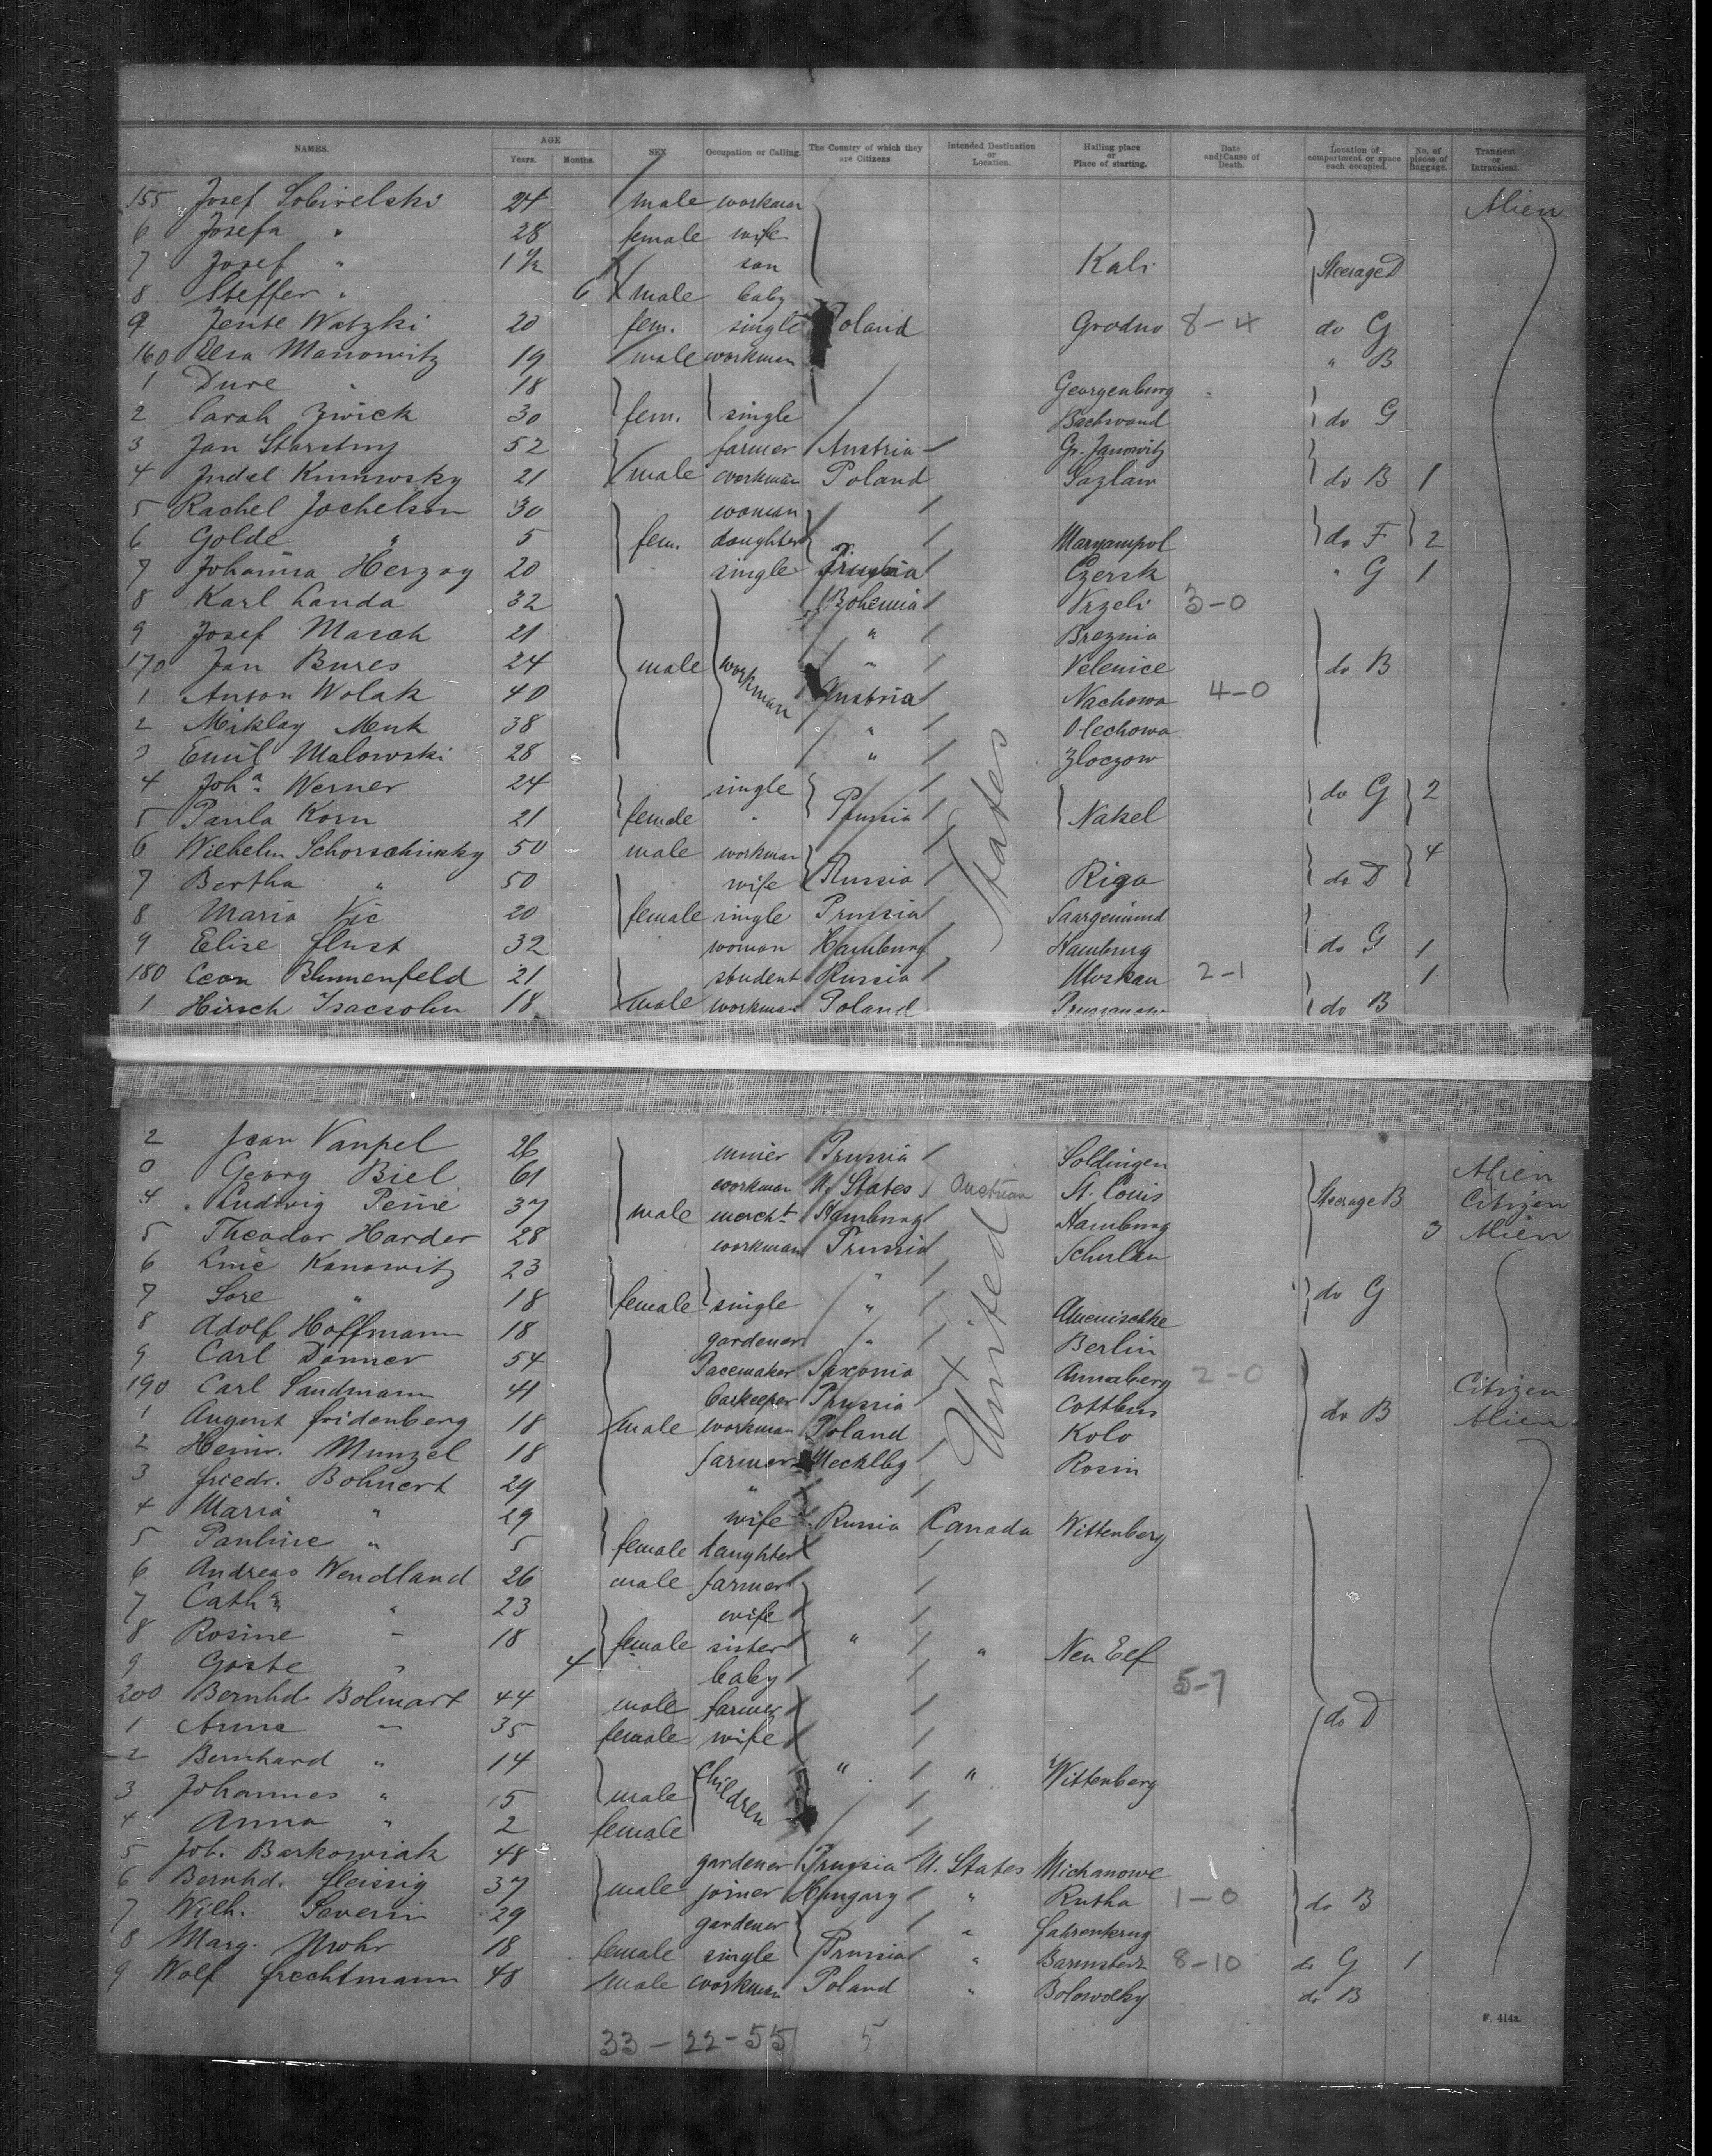 NAMES. AGE Years. Months. SEX Occupation or Calling. The Country of which they are Citizens Intended Destination or Location. Hailing place or Place of starting. Date and Cause of Death. Location of compartment or space each occupied. No. of pieces of Baggage. Transient or Intransient.
155 Josef 24 male workman Alien
6 Josefa " 28 female wife
7 Josef " 1½ son Kali Steerage D
8 Steffen " 6 male baby
9 Jente Watzki 20 fem. single Poland Grodno 8-4 do G
160 Manowitz 19 male workman " B
1 Dure " 18 Georgenburg
2 Sarah Zwick 30 fem. single do G
3 Jan 52 farmer Austria Gr. Janowitz
4 Judel 21 male workman Poland Sazlaw do B 1
5 Rachel Jochelson 30 woman
6 Golde " 5 fem. daughter Maryampol do F 2
7 Johanna Herzog 20 single Prussia Czersk " G 1
8 Karl Landa 32 Bohemia 3-0
9 Josef Marsch 21 " Breznia
170 Jan Bures 24 male workman " Velenice do B
1 Anton Wolak 40 Austria Nachowa 4-0
2 Miklay Menk 38 " Olechowa
3 Emil Malowski 28 " Zloczow
4 Joha Werner 24 single do G 2
5 Paula Korn 21 female " Prussia Nakel
6 Wilhelm Schorschinsky 50 male workman 4
7 Bertha " 50 wife Russia Riga do D
8 Maria Vic 20 female single Prussia Saargemünd
9 Elise 32 woman Hamburg Hamburg do G 1
180 Leon Blumenfeld 21 student Russia Moskau 2-1 1
1 Hirsch Isacsohn 18 male workman Poland do B
2 Jean Vanpel 26 miner Prussia Soldingen Alien
Georg Biel 61 workman U. States Austrian St. Louis Steerage B Citizen
4 Ludwig Peine 37 male mercht Hamburg Hamburg 3 Alien
5 Theodor Harder 28 workman Prussia Schulau
6 Kanowitz 23 "
7 Sore " 18 female single " do G
8 Adolf Hoffmann 18 gardener " Berlin
9 Carl Donner 54 Saxonia United States Annaberg 2-0
190 Carl Sandmann 41 Barkeeper Prussia Cottbus do B Citizen
1 August Fridenberg 18 male workman Poland Kolo Alien
2 Heinr. Munzel 18 farmer Mecklbg Rosin
3 Friedr. Bohnert 29 "
4 Maria " 29 wife Russia Canada Wittenberg
5 Pauline " 5 female daughter
6 Andreas Wendland 26 male farmer
7 Catha " 23 wife
8 Rosine " 18 female sister " " Neu Elf
9 " 4 baby 5-7
200 Bernhd. Bolmart 44 male farmer do D
1 Anna " 35 female wife
2 Bernhard " 14 children " " Wittenberg
3 Johannes " 15 male
4 Anna " 2 female
5 Joh. Barkowiak 48 gardener Prussia U. States Michanowe
6 Bernhd. Fleissig 37 male joiner Hungary " Rutha 1-0 do B
7 Wilh. Severin 29 gardener " Fahrenkrug
8 Marg. Mohr 18 female single Prussia " Barmstedt 8-10 do G 1
9 Wolf Frechtmann 48 male workman Poland " do B
33 - 22 - 55 5
F. 414a.